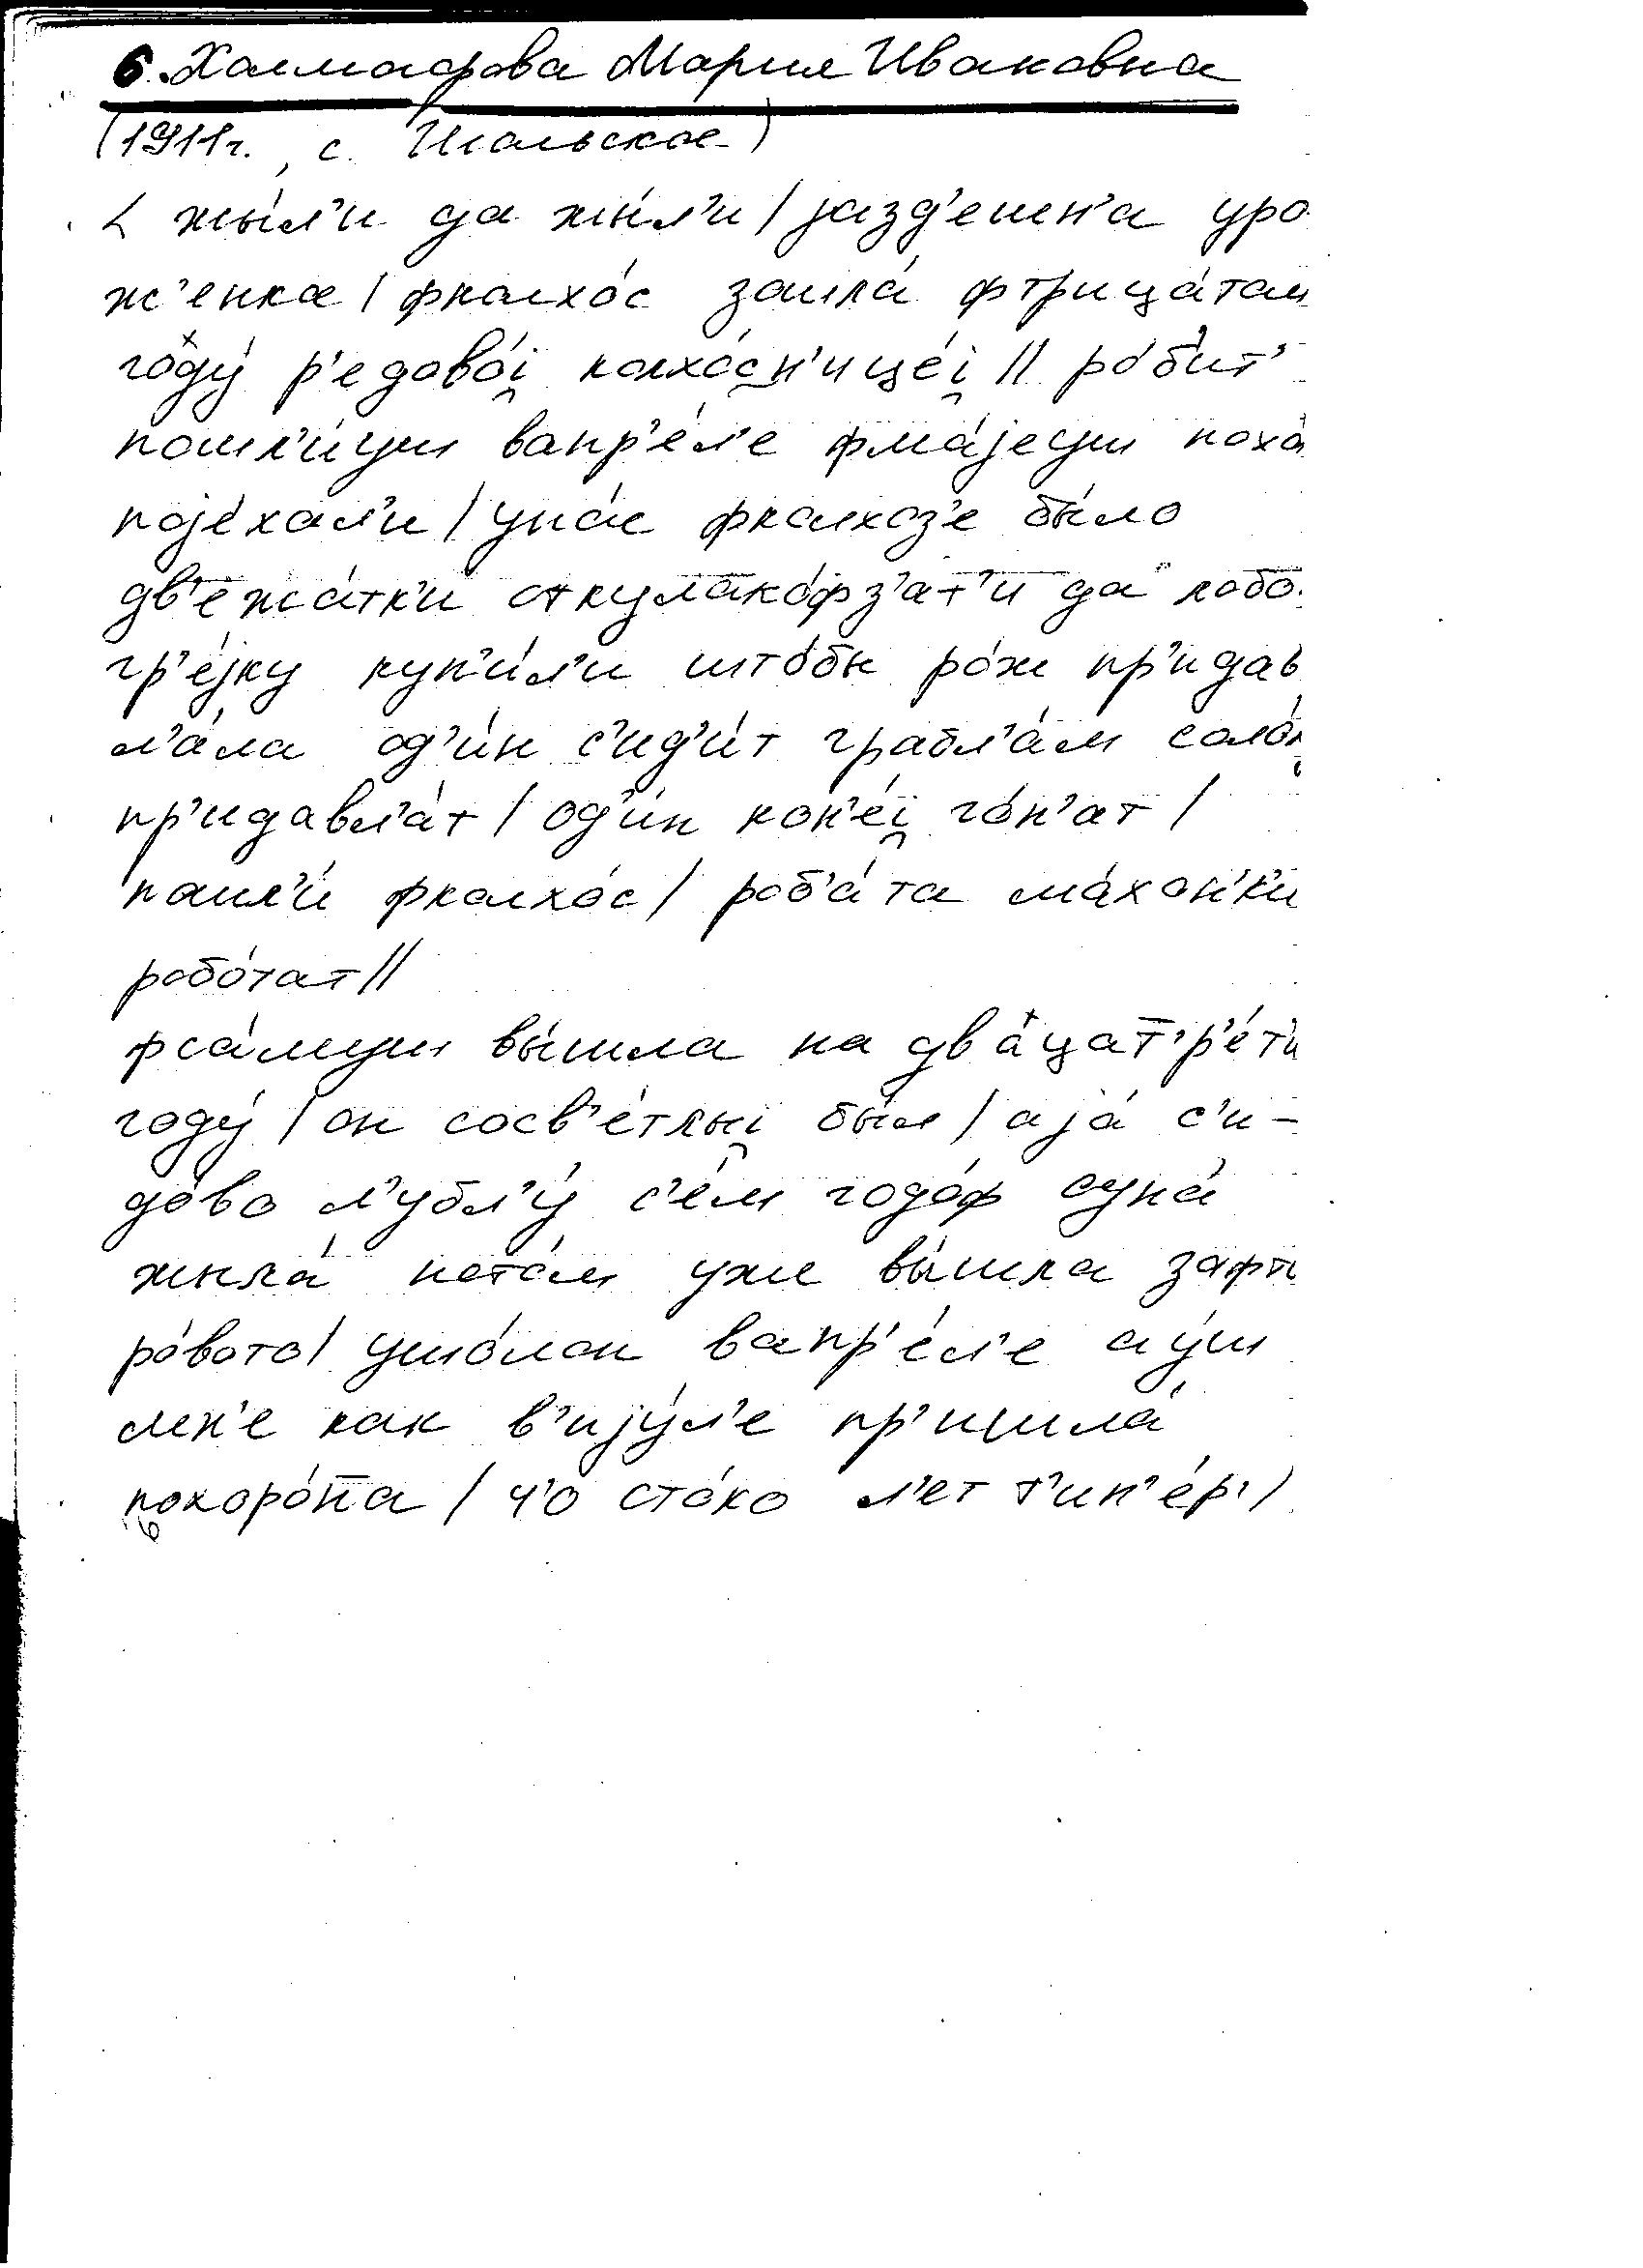 6. Холмофова Мария Ивановна
(1911г., с. Игальское)
< жы́л'и да жы́л'и / jазд'ешн'а уро
ж'енка / фколхо́с зашла́ фтрица́том
году́ р'едово́i̯ колхо́сн'ице́i̯ // ро́бит'
пошл'и́ уш вапр'е́л'е фма́jе уш поха́
поjе́хал'и / уна́с фколхоз'е бы́ло
дв'е жа́тк'и откулако́фвз'ат'и да лобо
гр'е́jку куп'и́л'и што́бы ро́ж пр'идав
л'а́ла од'и́н с'ид'и́т грабл'а́м соло́м
пр'идавл'а́т / од'и́н кон'е́i̯ го́н'ат /
пошл'и́ фколхо́с / роб'а́та ма́хон'к'и
робо́тат //
фса́муш вы́шла на два́цат'р'е́т'и
году́ / он сосв'е́тлыi̯ был / аjа́ с'и-
до́во л'убл'у́ с'е́м годо́ф суна́
жыла́ пото́м уже вы́шла зафты
ро́вото / ушо́лон вапр'е́л'е а у́ш
мн'е как в'иjу́л'е пр'ишла́
похоро́на / ч'о сто́ко л'ет т'ип'е́р' /